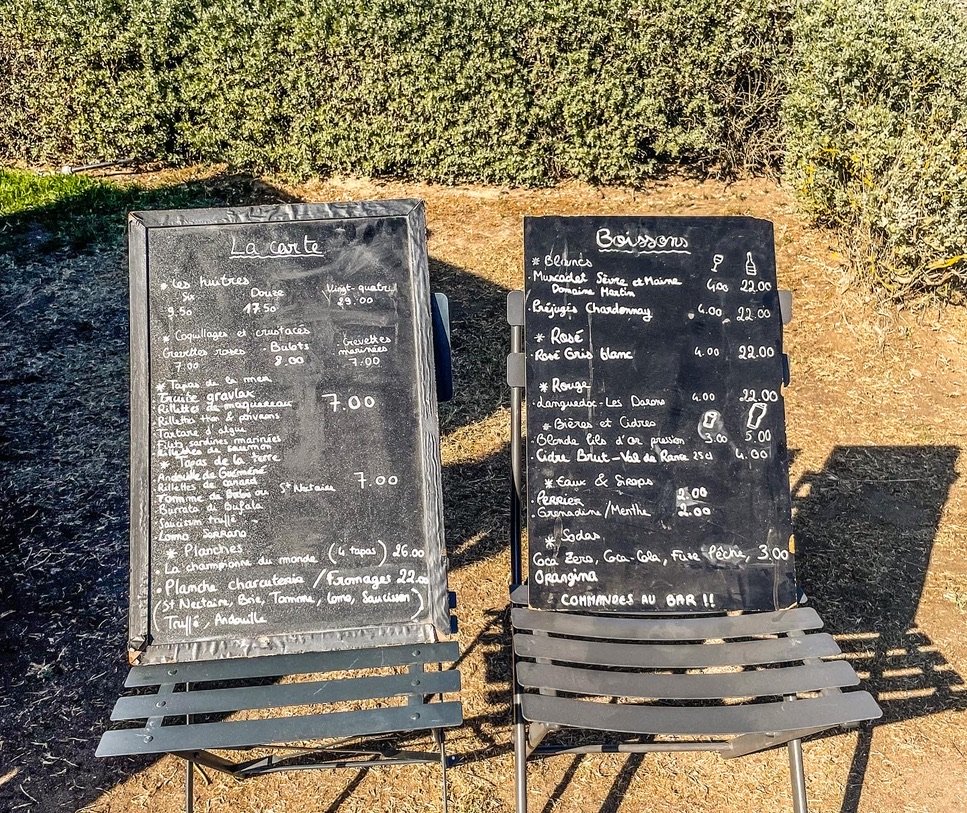 La carte
• Les huîtres
Six Douze Vingt-quatre
9.50 17.50 29.00
* Coquillages et crustacés
Crevettes roses • Bulots Crevettes marinées
7.00 8.00 7.00
* Tapas de la mer
Truite gravlax
• Rillettes de maquereau 7.00
• Rillettes thon &
• Tartare d'algue
• Filets sardines marinées
• Rillettes de saumon
* Tapas de la terre
Andouille de Guéméné
• Rillettes de canard 7.00
• Tomme de ou St Nectaire
• Burrata di Bufala
• Saucisson truffé
• Lomo Serrano
* Planches
• La championne du monde (4 tapas) 26.00
• Planche charcuterie / Fromages 22.00
(St Nectaire, Brie, Tomme, Lomo, Saucisson)
Truffé, Andouille
Boissons
* Blancs
• Muscadet Sèvre et Maine 4.00 22.00
Domaine Martin
• Préjugés Chardonnay 4.00 22.00
* Rosé
• Rosé Gris blanc 4.00 22.00
* Rouge
• Languedoc - Les Darons 4.00 22.00
* Bières et Cidres
• Blonde fils d'or pression 3.00 5.00
• Cidre Brut - Val de Rance 25cl 4.00
* Eaux & Sirops
PERRIER 2.00
• Grenadine / Menthe 2.00
* Sodas
Coca Zero, Coca-Cola, Fuze Pêche, 3.00
Orangina
COMMANDES AU BAR !!